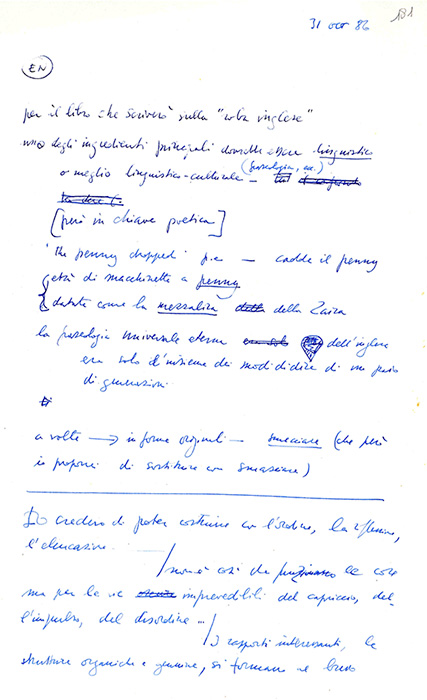 31 ott 86 181
EN
per il libro che scriverò sulla "roba inglese"
uno degli ingredienti principali dovrebbe essere linguistico
(fraseologia, ecc.)
o meglio linguistico-culturale –
[però in chiave poetica]
'the penny dropped' p.e. – cadde il penny
età di macchinette a penny
datate come la mezzalira della Zaira
la fraseologia universale eterna dell'inglese
era solo l'insieme dei modi di dire di un paio
di generazioni
a volte → in forme originali – smicciare (che però
io proporrei di sostituire con )
Io credevo di poter costruire con l'ordine, la riflessione,
l'educazione...
/non è così che funzionano le cose
ma per le vie imprevedibili del capriccio, del-
l'impulso, del disordine...
/I rapporti interessanti, le
strutture organiche e genuine, si formano